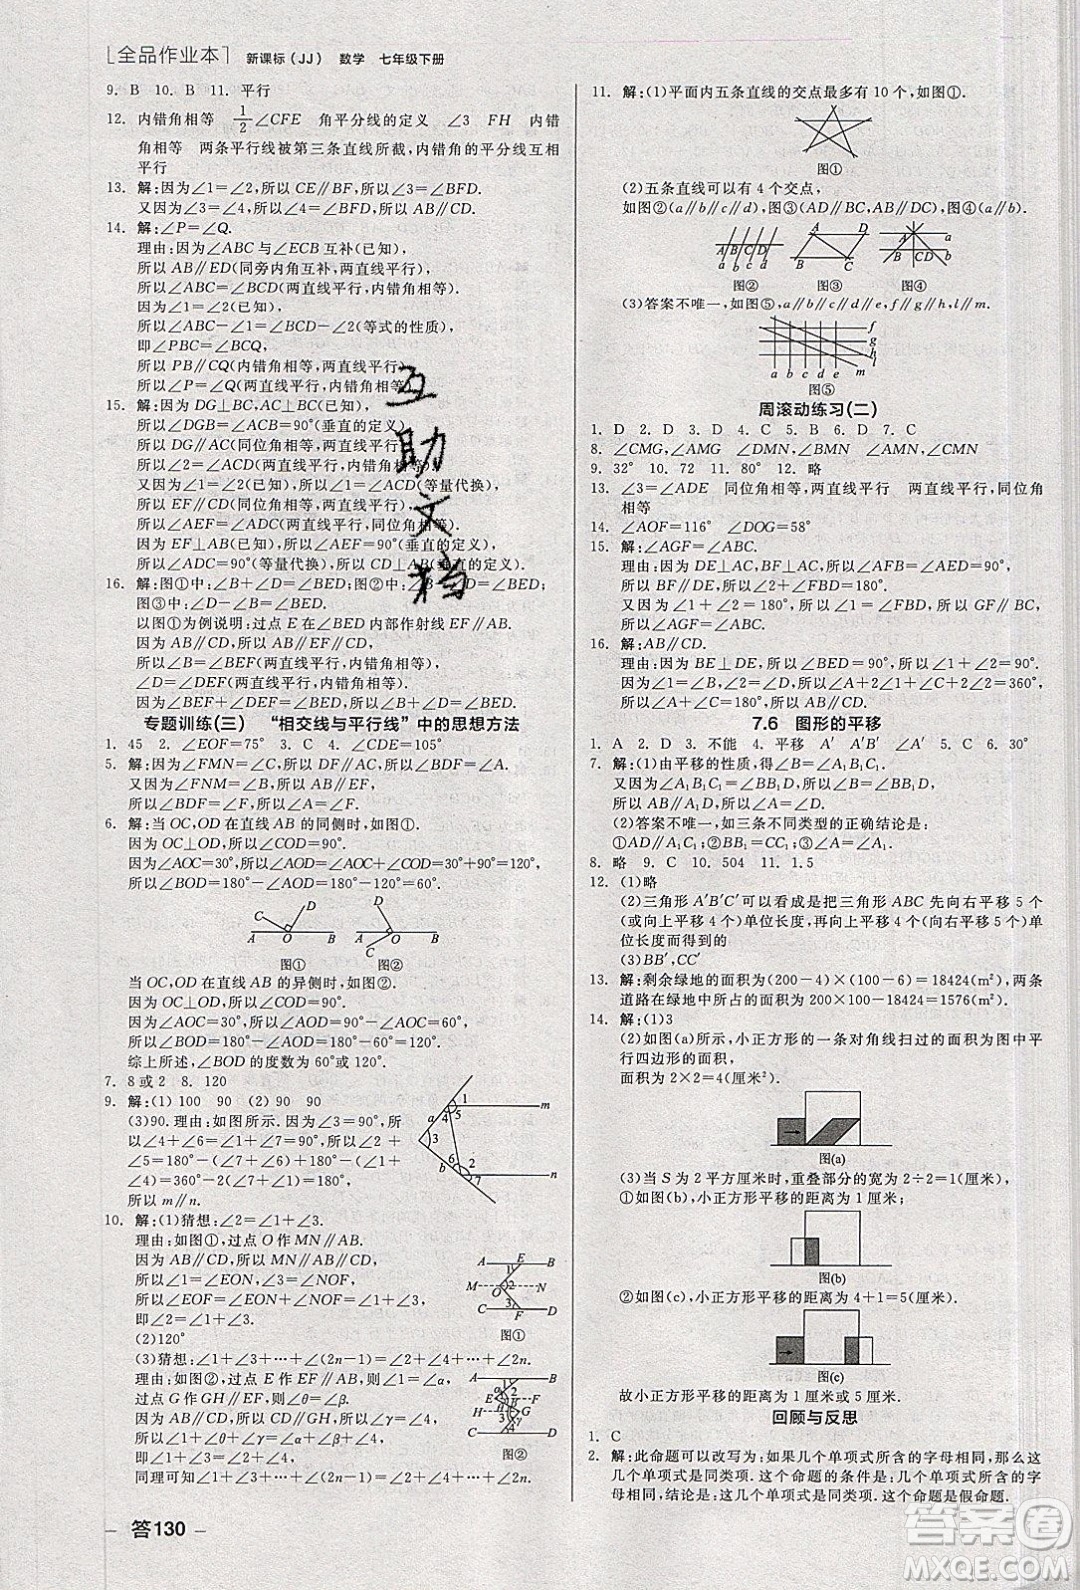 [全品作业本] 新课标(JJ) 数学 七年级下册
9. B 10. B 11. 平行
12. 内错角相等 1/2∠CFE 角平分线的定义 ∠3 FH 内错
角相等 两条平行线被第三条直线所截,内错角的平分线互相
平行
13. 解:因为∠1=∠2,所以 CE∥BF,所以∠3=∠BFD.
又因为∠3=∠4,所以∠4=∠BFD,所以 AB∥CD.
14. 解:∠P=∠Q.
理由:因为∠ABC 与∠ECB 互补(已知),
所以 AB∥ED(同旁内角互补,两直线平行),
所以∠ABC=∠BCD(两直线平行,内错角相等).
因为∠1=∠2(已知),
所以∠ABC-∠1=∠BCD-∠2(等式的性质),
即∠PBC=∠BCQ,
所以 PB∥CQ(内错角相等,两直线平行),
所以∠P=∠Q(两直线平行,内错角相等).
15. 解:因为 DG⊥BC,AC⊥BC(已知),
所以∠DGB=∠ACB=90°(垂直的定义),
所以 DG∥AC(同位角相等,两直线平行),
所以∠2=∠ACD(两直线平行,内错角相等).
又因为∠1=∠2,所以∠1=∠ACD(等量代换),
所以 EF∥CD(同位角相等,两直线平行),
所以∠AEF=∠ADC(两直线平行,同位角相等).
因为 EF⊥AB,所以∠AEF=90°(垂直的定义),
所以∠ADC=90°(等量代换),所以 CD⊥AB(垂直的定义).
16. 解:图①中:∠B+∠D=∠BED;图②中:∠B+∠D=∠BED;
图③中:∠D-∠B=∠BED.
以图①为例说明:过点 E 在∠BED 内部作射线 EF∥AB.
因为 AB∥CD,所以 AB∥EF∥CD,
所以∠B=∠BEF(两直线平行,内错角相等),
∠D=∠DEF(两直线平行,内错角相等),
所以∠BEF+∠DEF=∠B+∠D,即∠B+∠D=∠BED.
专题训练(三) “相交线与平行线”中的思想方法
1. 45 2. ∠EOF=75° 3. C 4. ∠CDE=105°
5. 解:因为∠FMN=∠C,所以 DF∥AC,所以∠BDF=∠A.
又因为∠FNM=∠B,所以 AB∥EF,
所以∠BDF=∠F,所以∠A=∠F.
6. 解:当 OC,OD 在直线 AB 的同侧时,如图①.
因为 OC⊥OD,所以∠COD=90°.
又因为∠AOC=30°,所以∠AOD=90°+30°=120°,
所以∠BOD=180°-∠AOD=180°-120°=60°.
C D A O B 图①
D A O B C 图②
当 OC,OD 在直线 AB 的异侧时,如图②.
因为 OC⊥OD,所以∠COD=90°.
又因为∠AOC=30°,所以∠AOD=90°-30°=60°,
所以∠BOD=180°-∠AOD=180°-60°=120°.
综上所述,∠BOD 的度数为 60°或 120°.
7. 8 或 2 8. 120
9. 解:(1)100 90 (2)90 90
(3)90. 理由:如图所示.因为∠3=90°,
所以∠4+∠6=90°.又由题意知∠1=
∠5,∠2=∠7=∠6,所以∠2+∠7+∠1
+∠5=180°,所以∠1+∠5+∠2+∠6+
∠4)=180°.
所以 m∥n.
a 1 4 5 m 3 b 6 2 7 n
10. 解:(1)猜想:∠2=∠1+∠3.
理由:如图①,过点 O 作 MN∥AB.
因为 AB∥CD,所以 MN∥AB∥CD,
所以∠1=∠EON,∠3=∠FON,
所以∠EOF=∠EON+∠FON=∠1+∠3,
即∠2=∠1+∠3.
A E B M O N C F D 1 2 3 图①
(2)120°
(3)猜想:∠1+∠3+⋯+∠(2n-1)=∠2+∠4+⋯+∠2n.
理由:∠1+∠3+⋯+∠(2n-1)=∠2+∠4+⋯+∠2n.
过点 G 作 GH∥EF,则∠α=∠β.
因为 AB∥CD,所以 AB∥EF∥GH∥CD,
所以∠1+∠α=∠2,∠3=∠β+∠γ,∠4=∠γ+∠5,
所以∠2+∠4=∠1+∠α+∠γ+∠5=∠1+∠3+∠5,
同理可知∠1+∠3+⋯+∠(2n-1)=∠2+∠4+⋯+∠2n.
图②
答130
11. 解:(1)平面内五条直线的交点最多有 10 个,如图①.
图①
(2)五条直线可以有 4 个交点,
如图②(a∥b∥c∥d),图③(AD∥BC,AB∥CD),图④(a∥b).
a b c d 图②
A D B C 图③
A a B C D b 图④
(3)答案不唯一,如图⑤,a∥b∥c∥d∥e,f∥g∥h,l∥m.
f g h l m 图⑤
周滚动练习(二)
1. D 2. D 3. D 4. C 5. B 6. D 7. C
8. ∠CMG, ∠CMF ∠DMN ∠BMN, ∠CMN
9. 32° 10. 72 11. 80° 12. 略
13. ∠3=∠ADE 同位角相等,两直线平行 两直线平行,同位角
相等
14. ∠AOF=116° ∠DOG=58°
15. 解:∠AGF=∠ABC.
理由:因为 DE⊥AC,BF⊥AC,
所以 DE∥BF,所以∠2+∠FBD=180°.
又因为∠1+∠2=180°,所以∠1=∠FBD,所以 GF∥BC,
所以∠AGF=∠ABC.
16. 解:AB∥CD.
理由:因为 BE⊥DE,所以∠BED=90°,所以∠1+∠2=90°,
所以∠ABD+∠BDC=2∠1+2∠2=2(∠1+∠2)=180°,
所以 AB∥CD.
7.6 图形的平移
1. A 2. D 3. 不能 4. 平移 A′ A′ 5. C 6. 30°
7. 解:(1)由平移的性质,得∠B=∠A₁B₁C₁.
又因为∠A₁B₁C₁=∠BB₁D,所以∠B=∠BB₁D,
所以 A₁B₁∥AB.
(2)答案不唯一,如三个不同类型的正确结论是:
①AB=A₁B₁;②BB₁=CC₁;③∠A=∠A₁.
8. 略 9. C 10. 504 11. 1.5
12. (1)略
(2)三角形 A′B′C′可以看成是把三角形 ABC 先向右平移 5 个
(或向上平移 4 个)单位长度,再向上平移 4 个(向右平移 5 个)单
位长度而得到的
(3)BB′,CC′
13. 解:剩余绿地的面积为(200-4)×(100-6)=18424(m²),两条
道路在绿地中所占的面积为 200×100-18424=1576(m²).
14. 解:(1)3
(2)如图(a)所示,小正方形的一条对角线扫过的面积为图中平
行四边形的面积,
面积为 2×2=4(厘米²)
图(a)
(3)当 S 为 2 平方厘米时,重叠部分的宽为 2÷2=1(厘米).
①如图(b),小正方形平移的距离为 1 厘米;
图(b)
②如图(c),小正方形平移的距离为 4+1=5(厘米).
图(c)
故小正方形平移的距离为 1 厘米或 5 厘米.
回顾与反思
1. C
2. 解:此命题可以改写为:如果几个单项式所含的字母相同,那么这
几个单项式是同类项.这个命题的条件是:几个单项式所含的字
母相同,结论是:这几个单项式是同类项.这个命题是假命题.
互助文档
答案圈
MXQE.COM